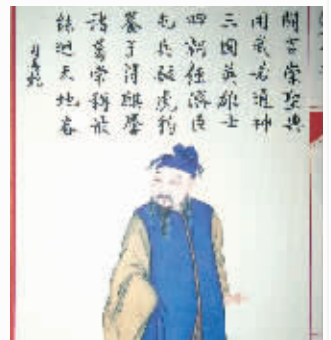 開言崇聖典
用武若通神
三国英雄士
四朝經濟臣
屯兵驅虎豹
養子得麒麟
諸葛常稱羨
能迴天地春
司馬懿